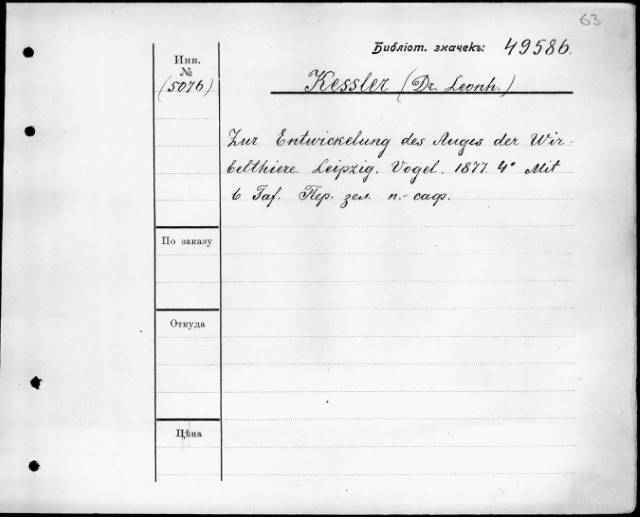 63
Библіот. значекъ: 49586.
Инв.
№
(5076)
Kessler (Dr. Leonh.)
Zur Entwickelung des Auges der Wir-
belthiere. Leipzig. Vogel. 1877. 4° Mit
6 Taf. Пер. зел. п.-саф.
По заказу
Откуда
Цѣна